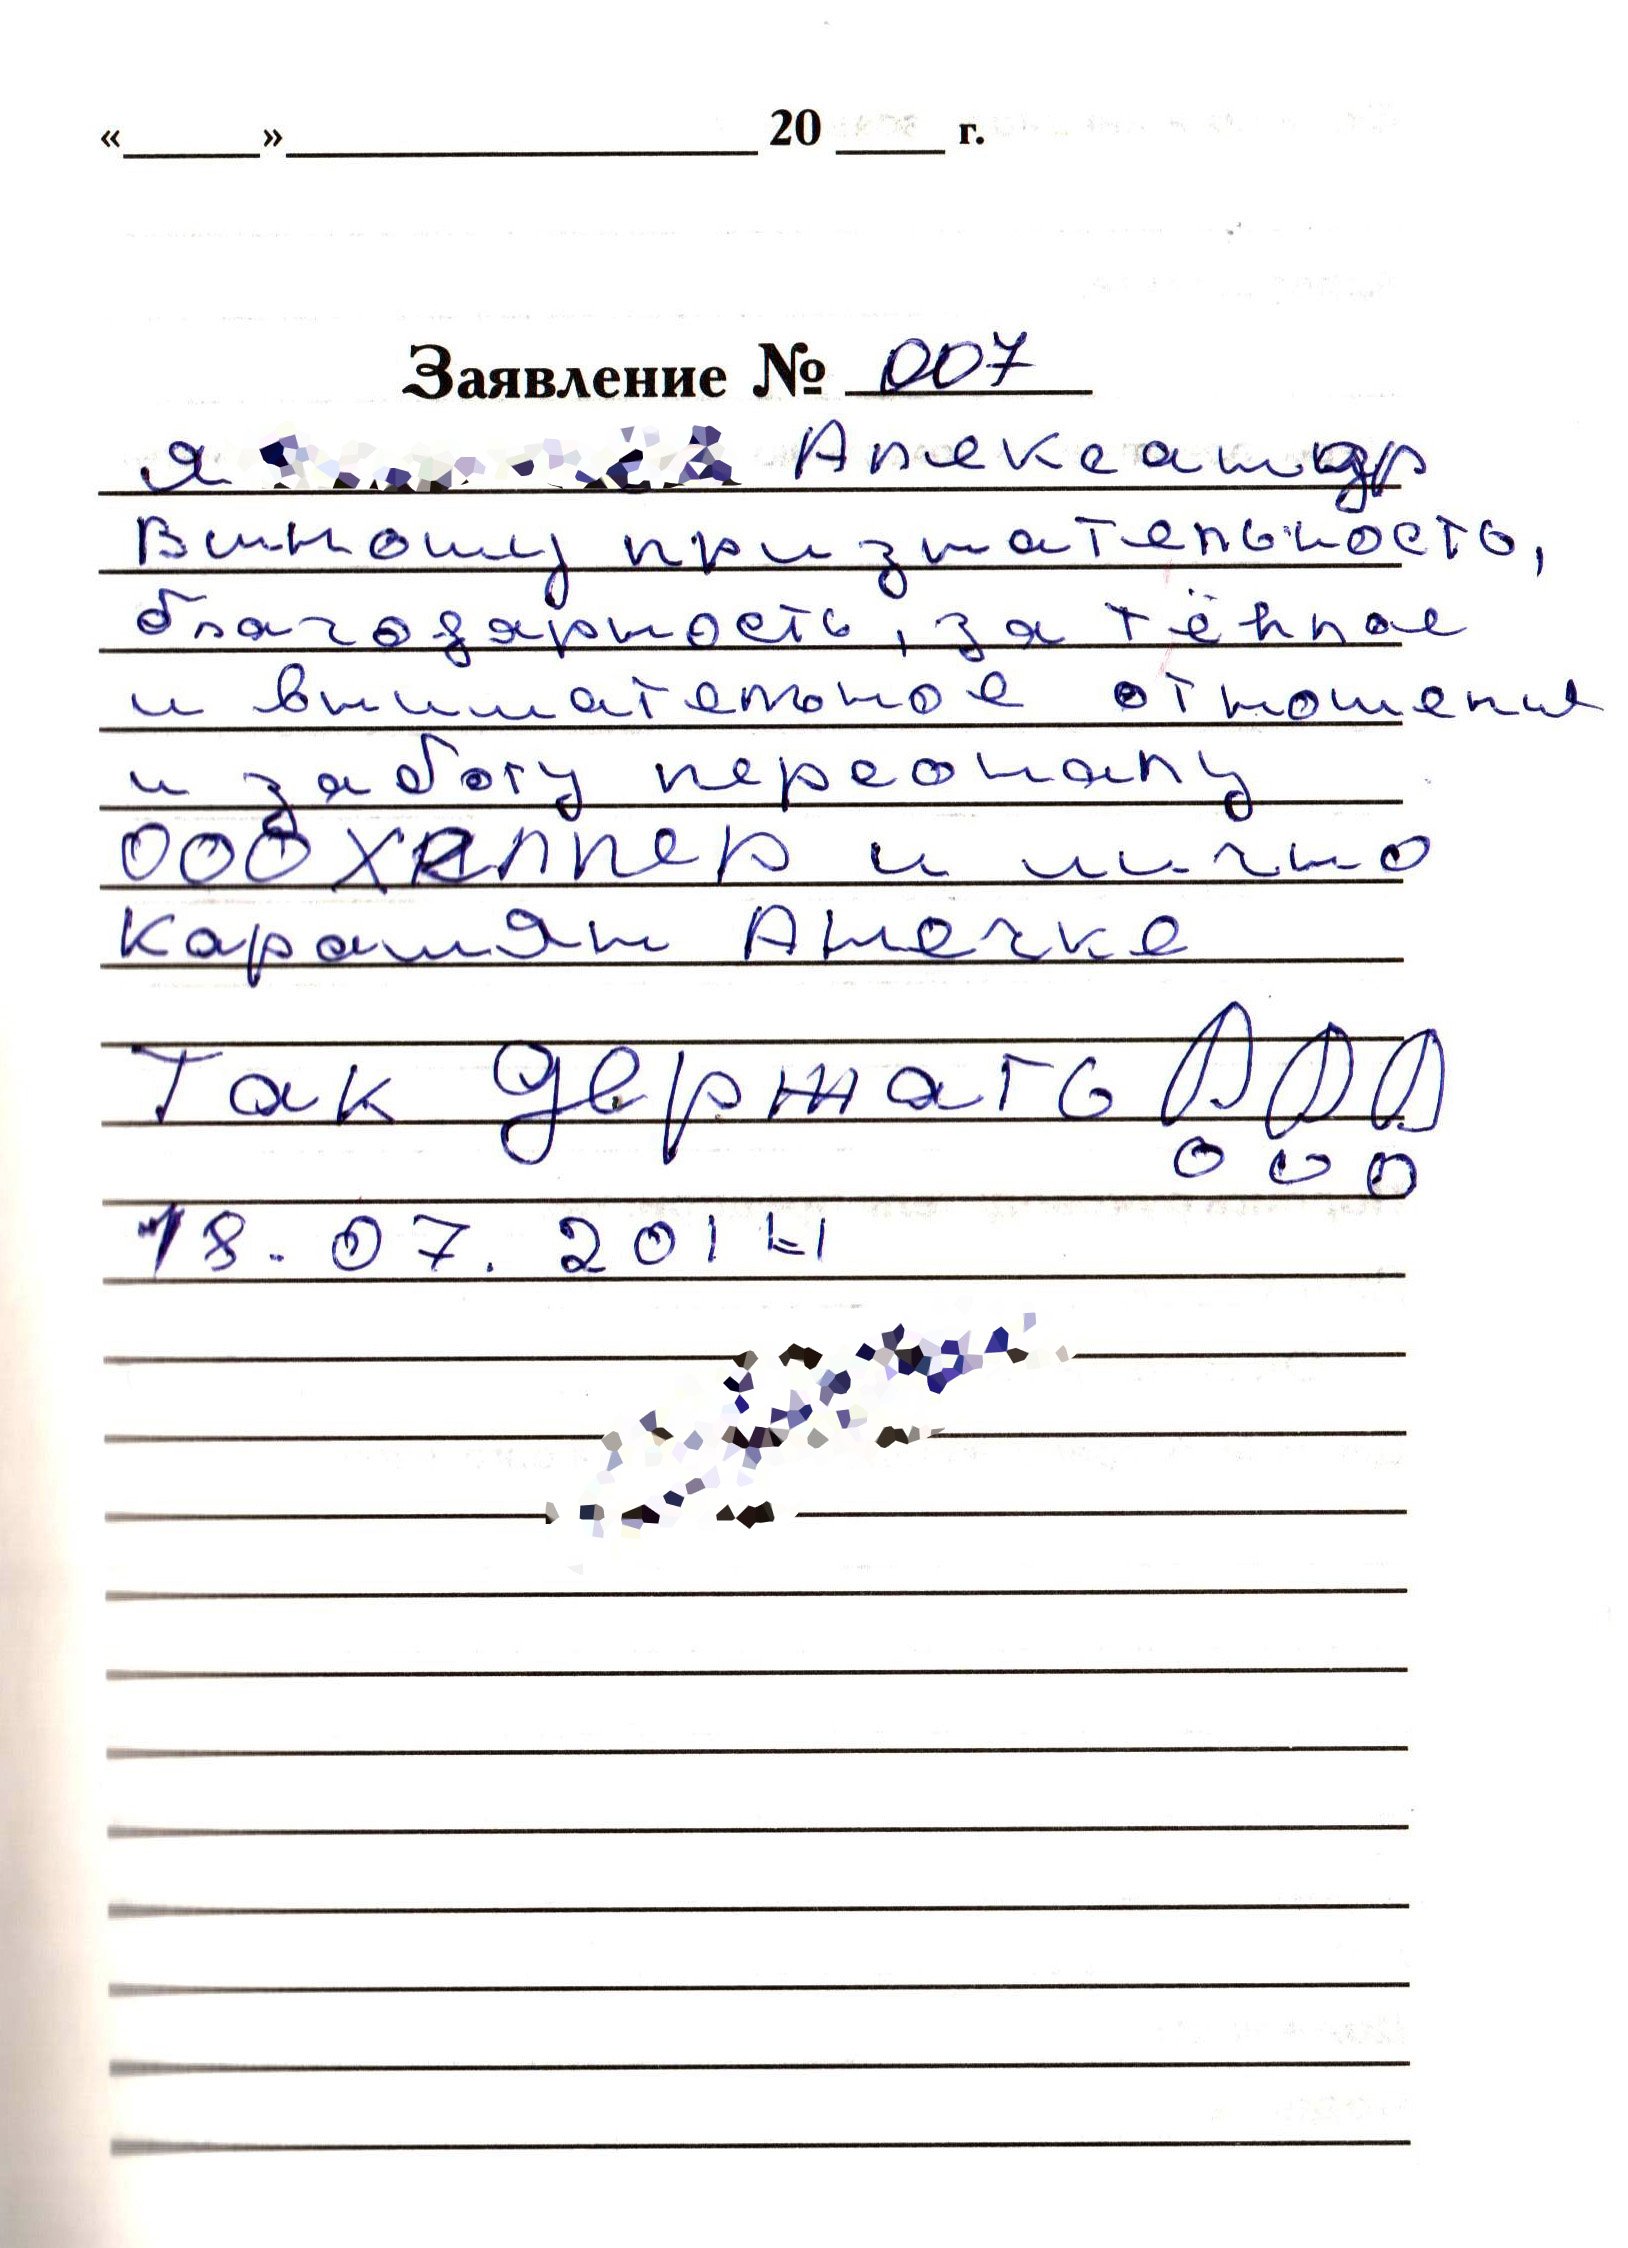 «______»____________________ 20 ____ г.
Заявление № 007
Я Александр
Выношу признательность,
благодарность, за тёплое
и внимательное отношение
и заботу персоналу
ООО Хелпер и лично
Карамян Анечке
Так держать !!!
18.07.2014